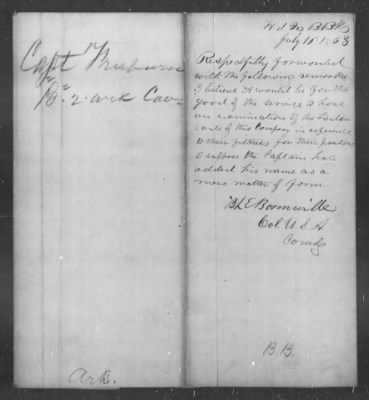 Capt
B" 2. Ark Cav
Ark.
Hd Qrs B Bks
July 18, 1863
Respectfully forwarded
with the following remarks
I believe it would be for the
good of the service to have
an examination of the
of this Company in reference
to their fitness for their positions
I suppose the Captain has
added his name as a
mere matter of form.
B L E Bonneville
Col. U S A
Comdg
B. B.